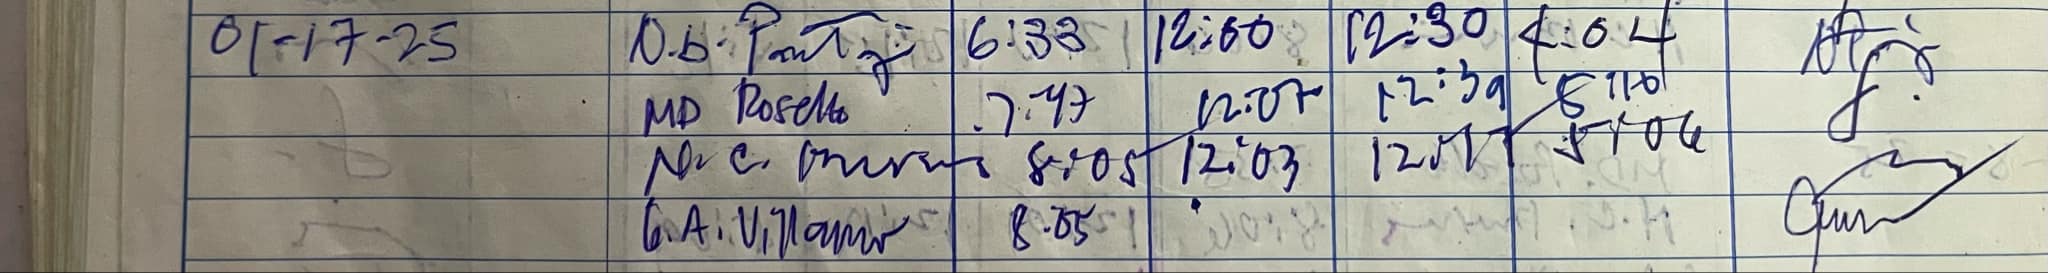 01-17-25 N.b. 6:33 12:00 12:30 4:04
MD Rosello 7:47 12:07 12:39 5:10
N. C. 8:05 12:03 5:06
G.A. Villamor 8:05